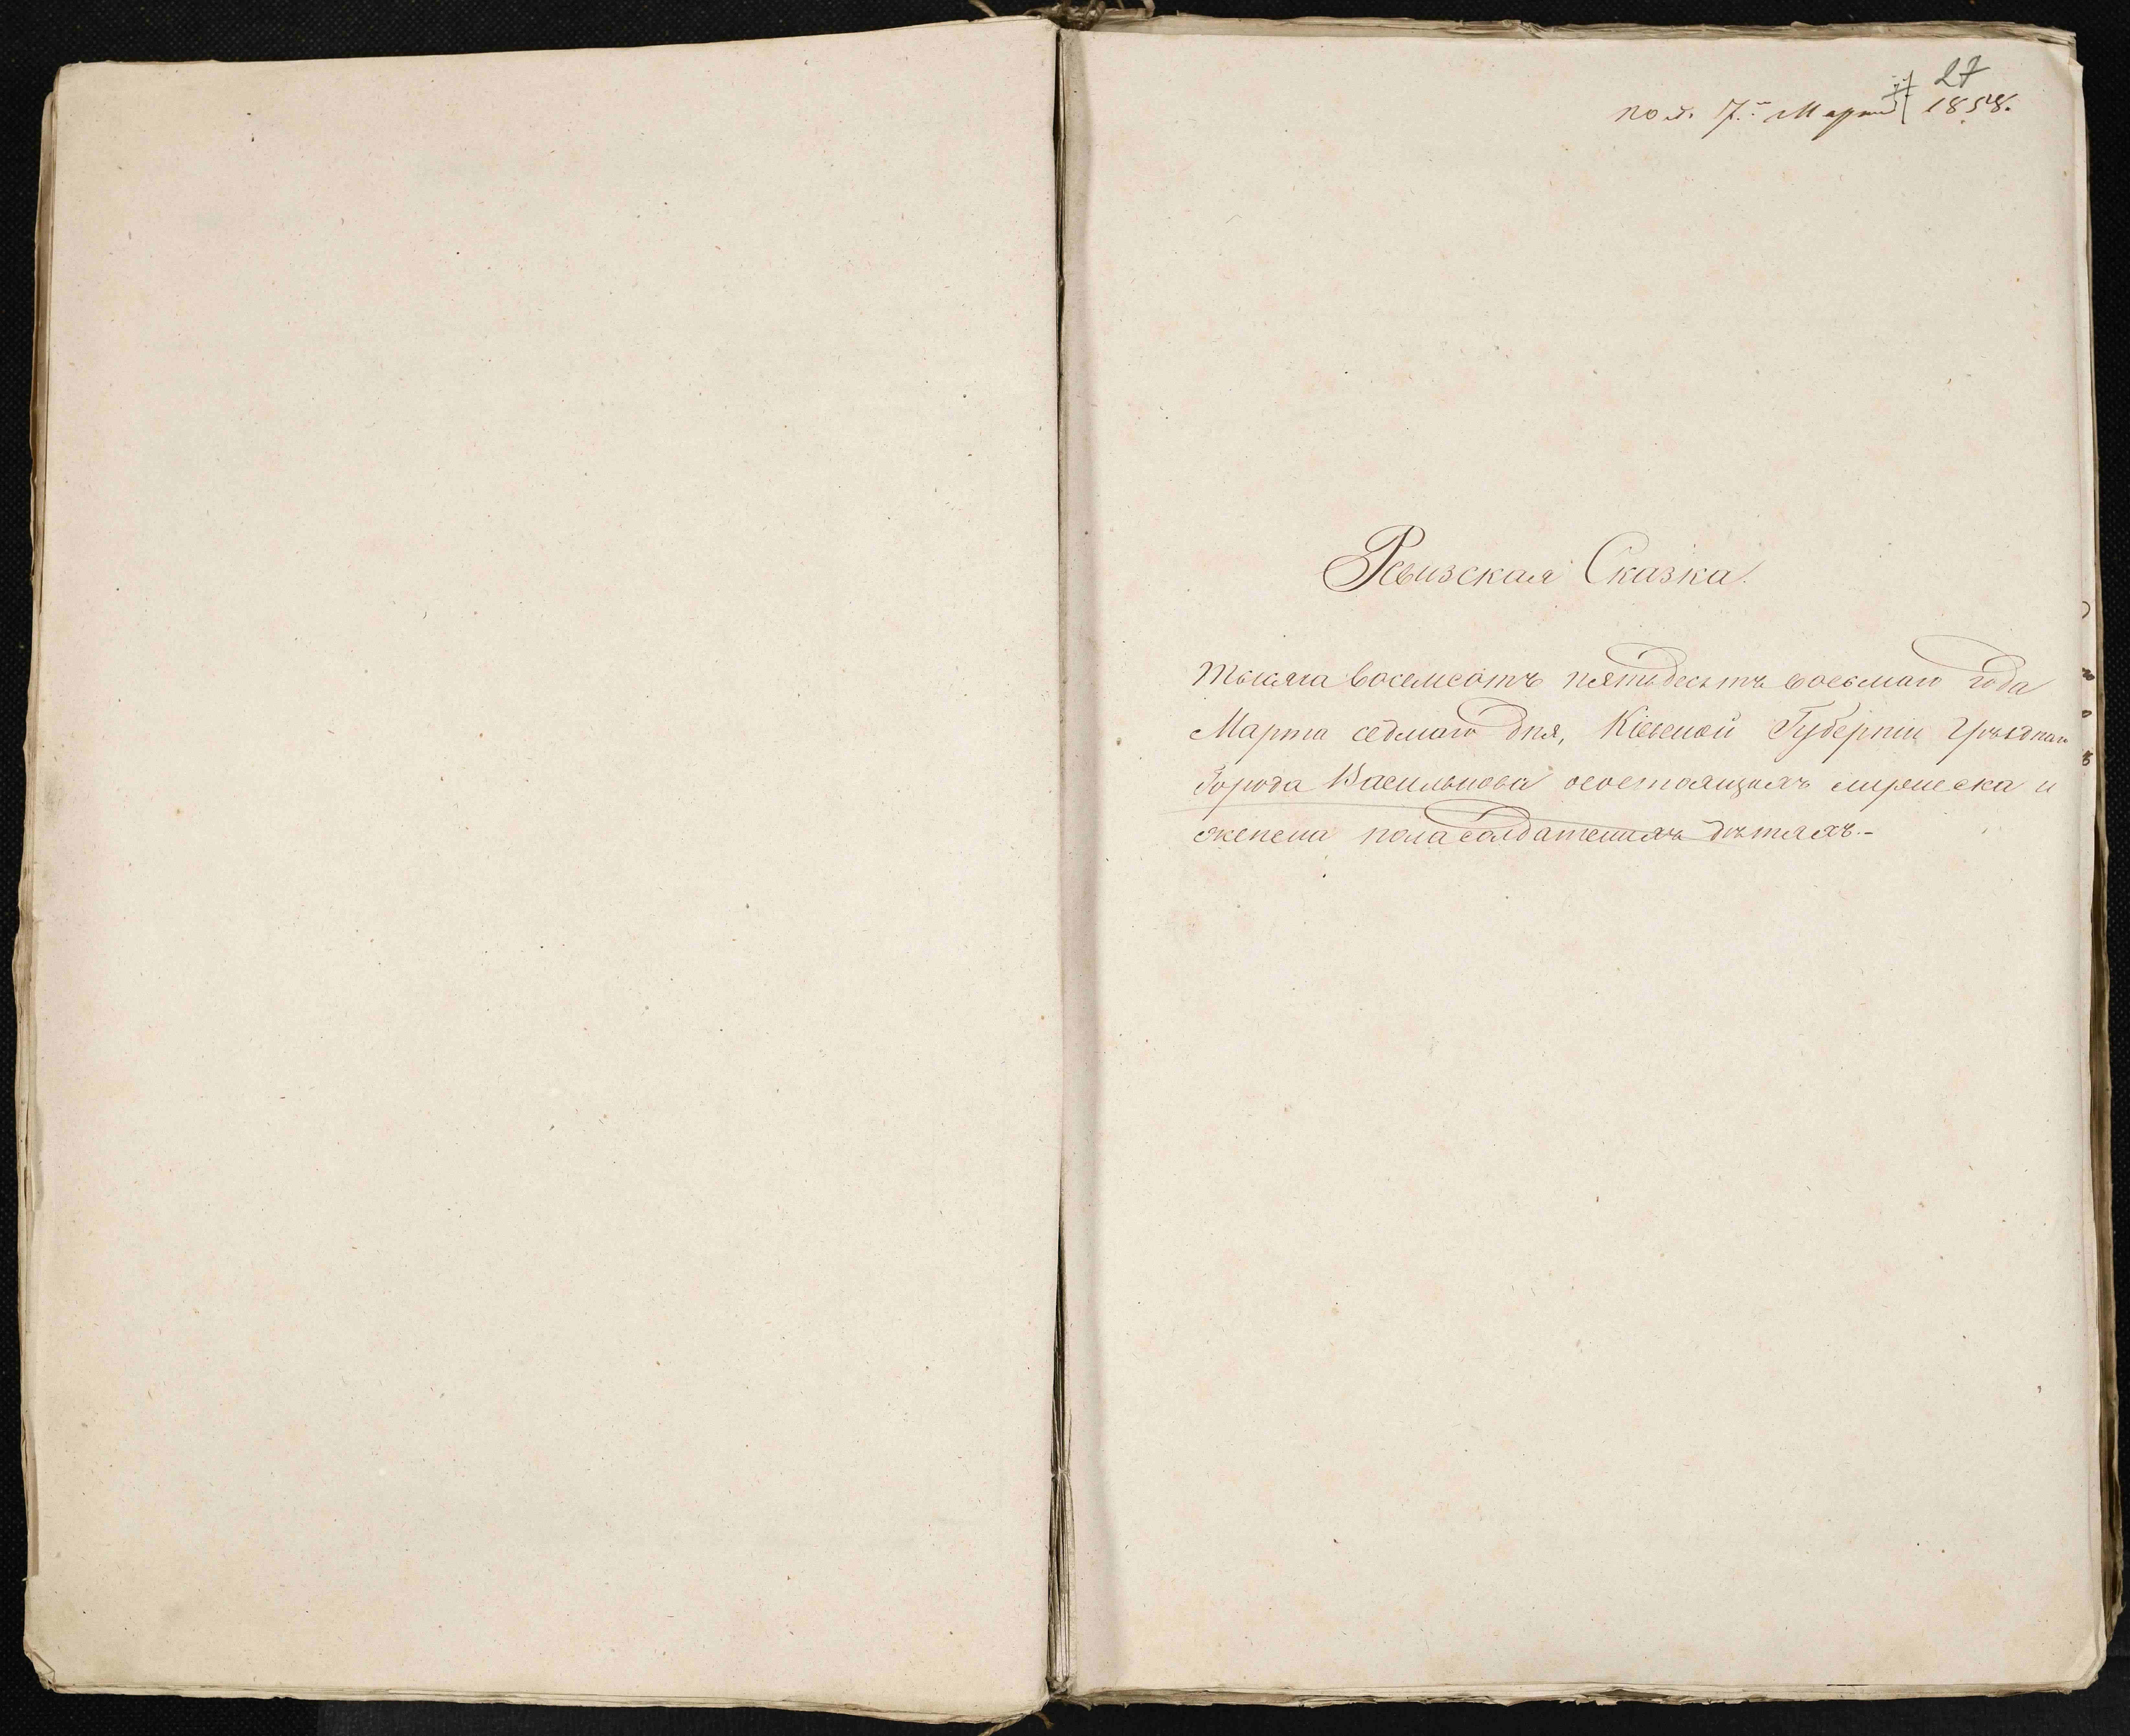 27
пол. 7го Марта 1858.
Ревизская Сказка.
Тысяча восемсотъ пятьдесятъ восьмаго года
Марта седмаго дня, Кіевской Губерніи Уѣзднаго
Города Василькова осостоящихъ мужеска и
женска пола солдатскихъ дѣтяхъ.-